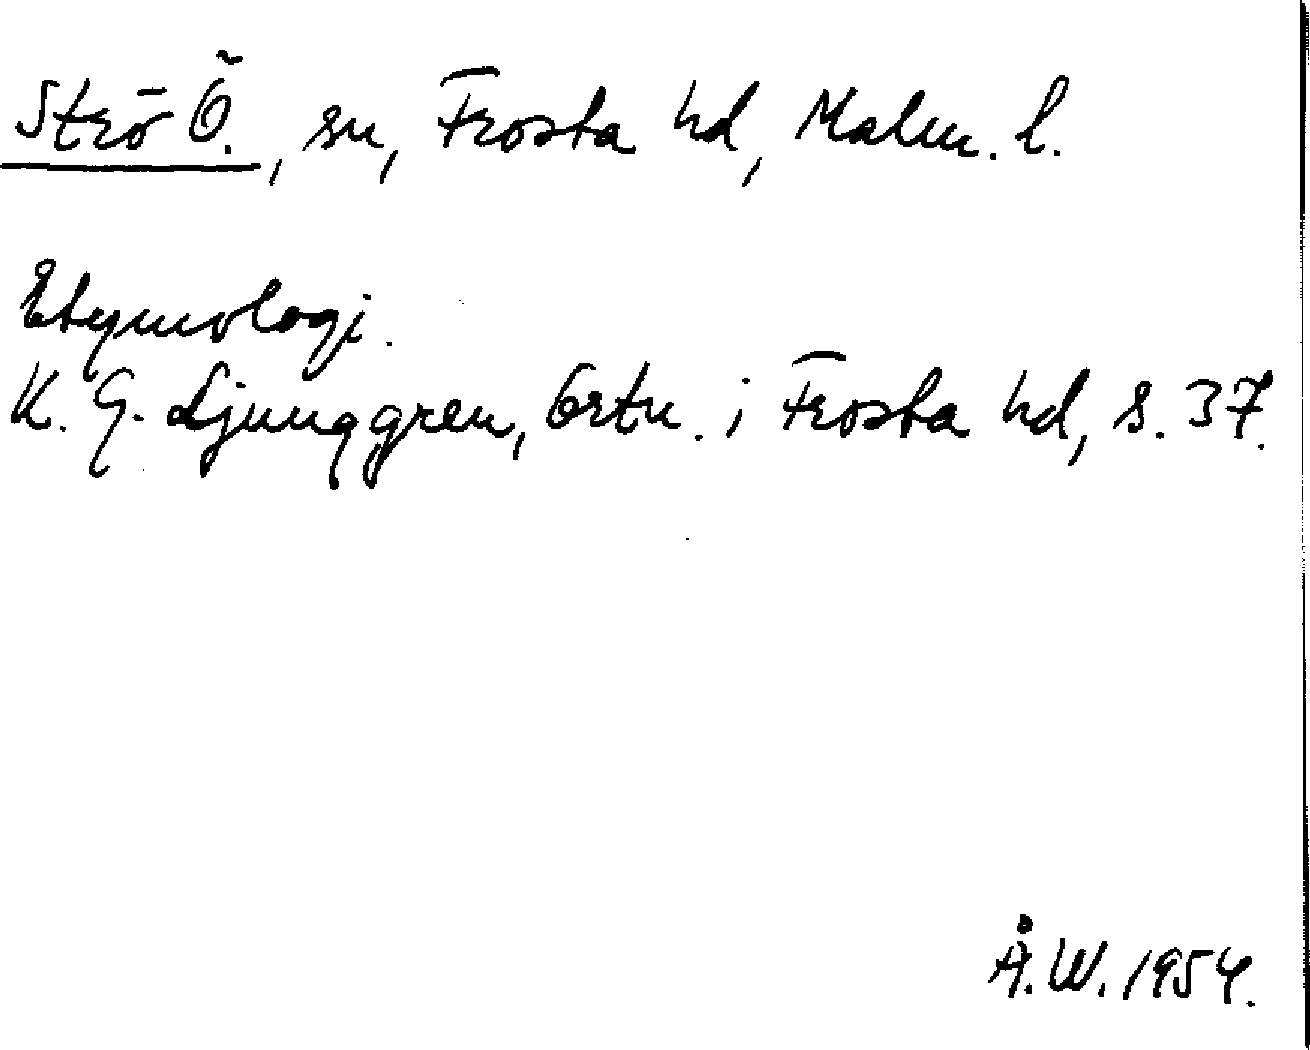 Strö Ö., sn, Frosta hd, Malm. l.
Etymologi.
K. G. Ljunggren, Ortn. i Frosta hd, s. 37.
Å.W. 1954.